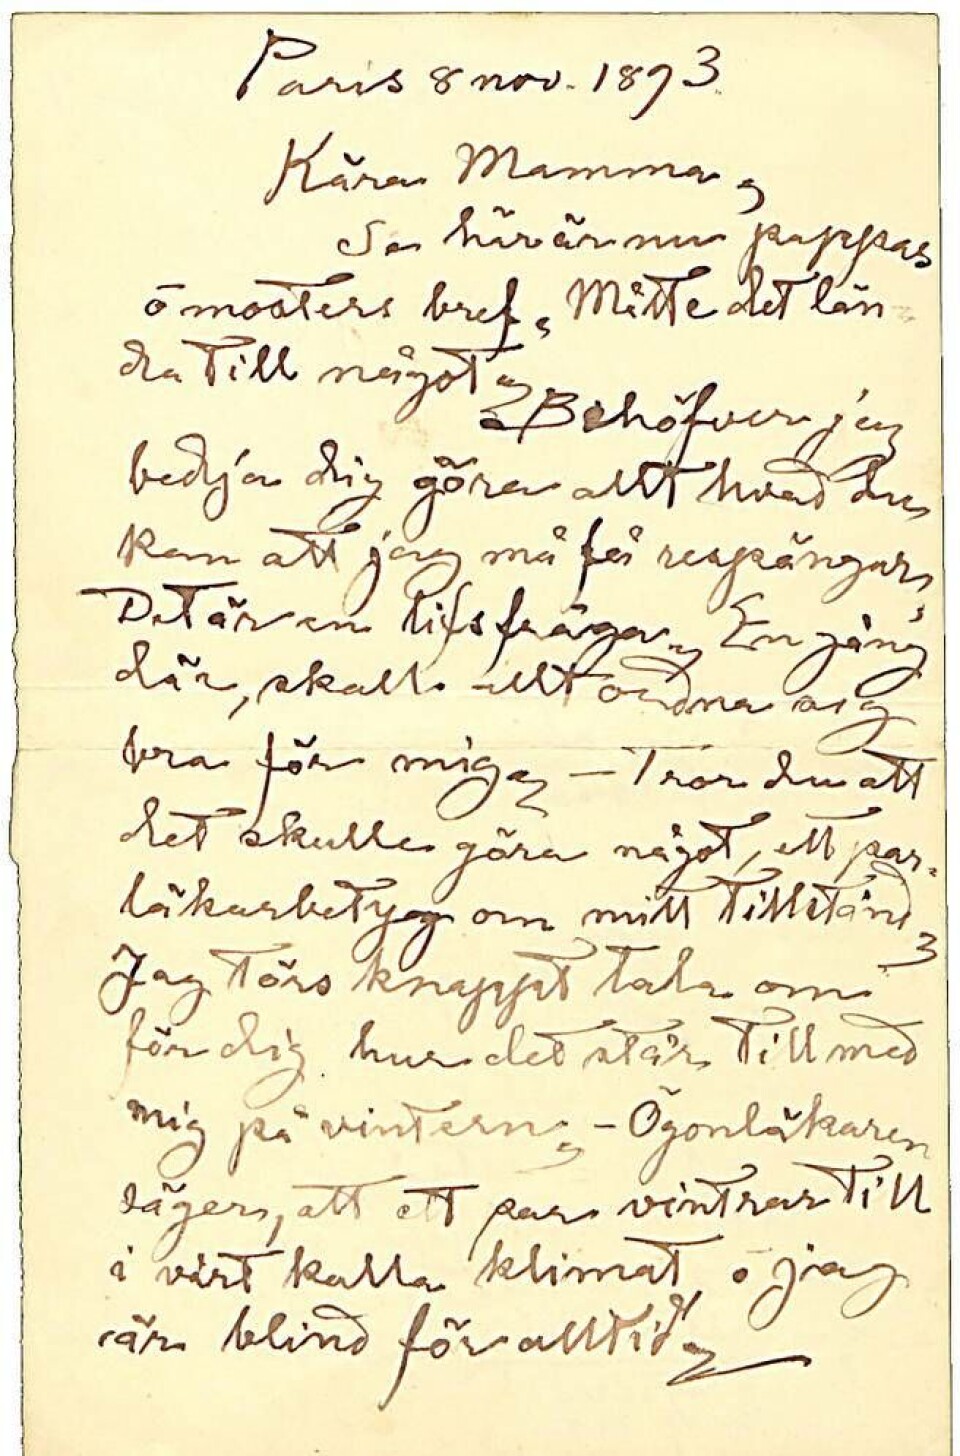 Paris 8 nov. 1893.
Kära Mamma,
Se här är nu pappas
o mosters bref. Måtte det län-
da till något.
Behöfver jag
bedja dig göra allt hvad du
kan att jag må få respängar.
Det är en lifsfråga. En gång
där, skall allt ordna sig
bra för mig. – Tror du att
det skulle göra något, ett par
läkarbetyg om mitt tillstånd?
Jag törs knappt tala om
för dig hur det står till med
mig på vintern. – Ögonläkaren
säger, att ett par vintrar till
i vårt kalla klimat o jag
är blind för alltid.